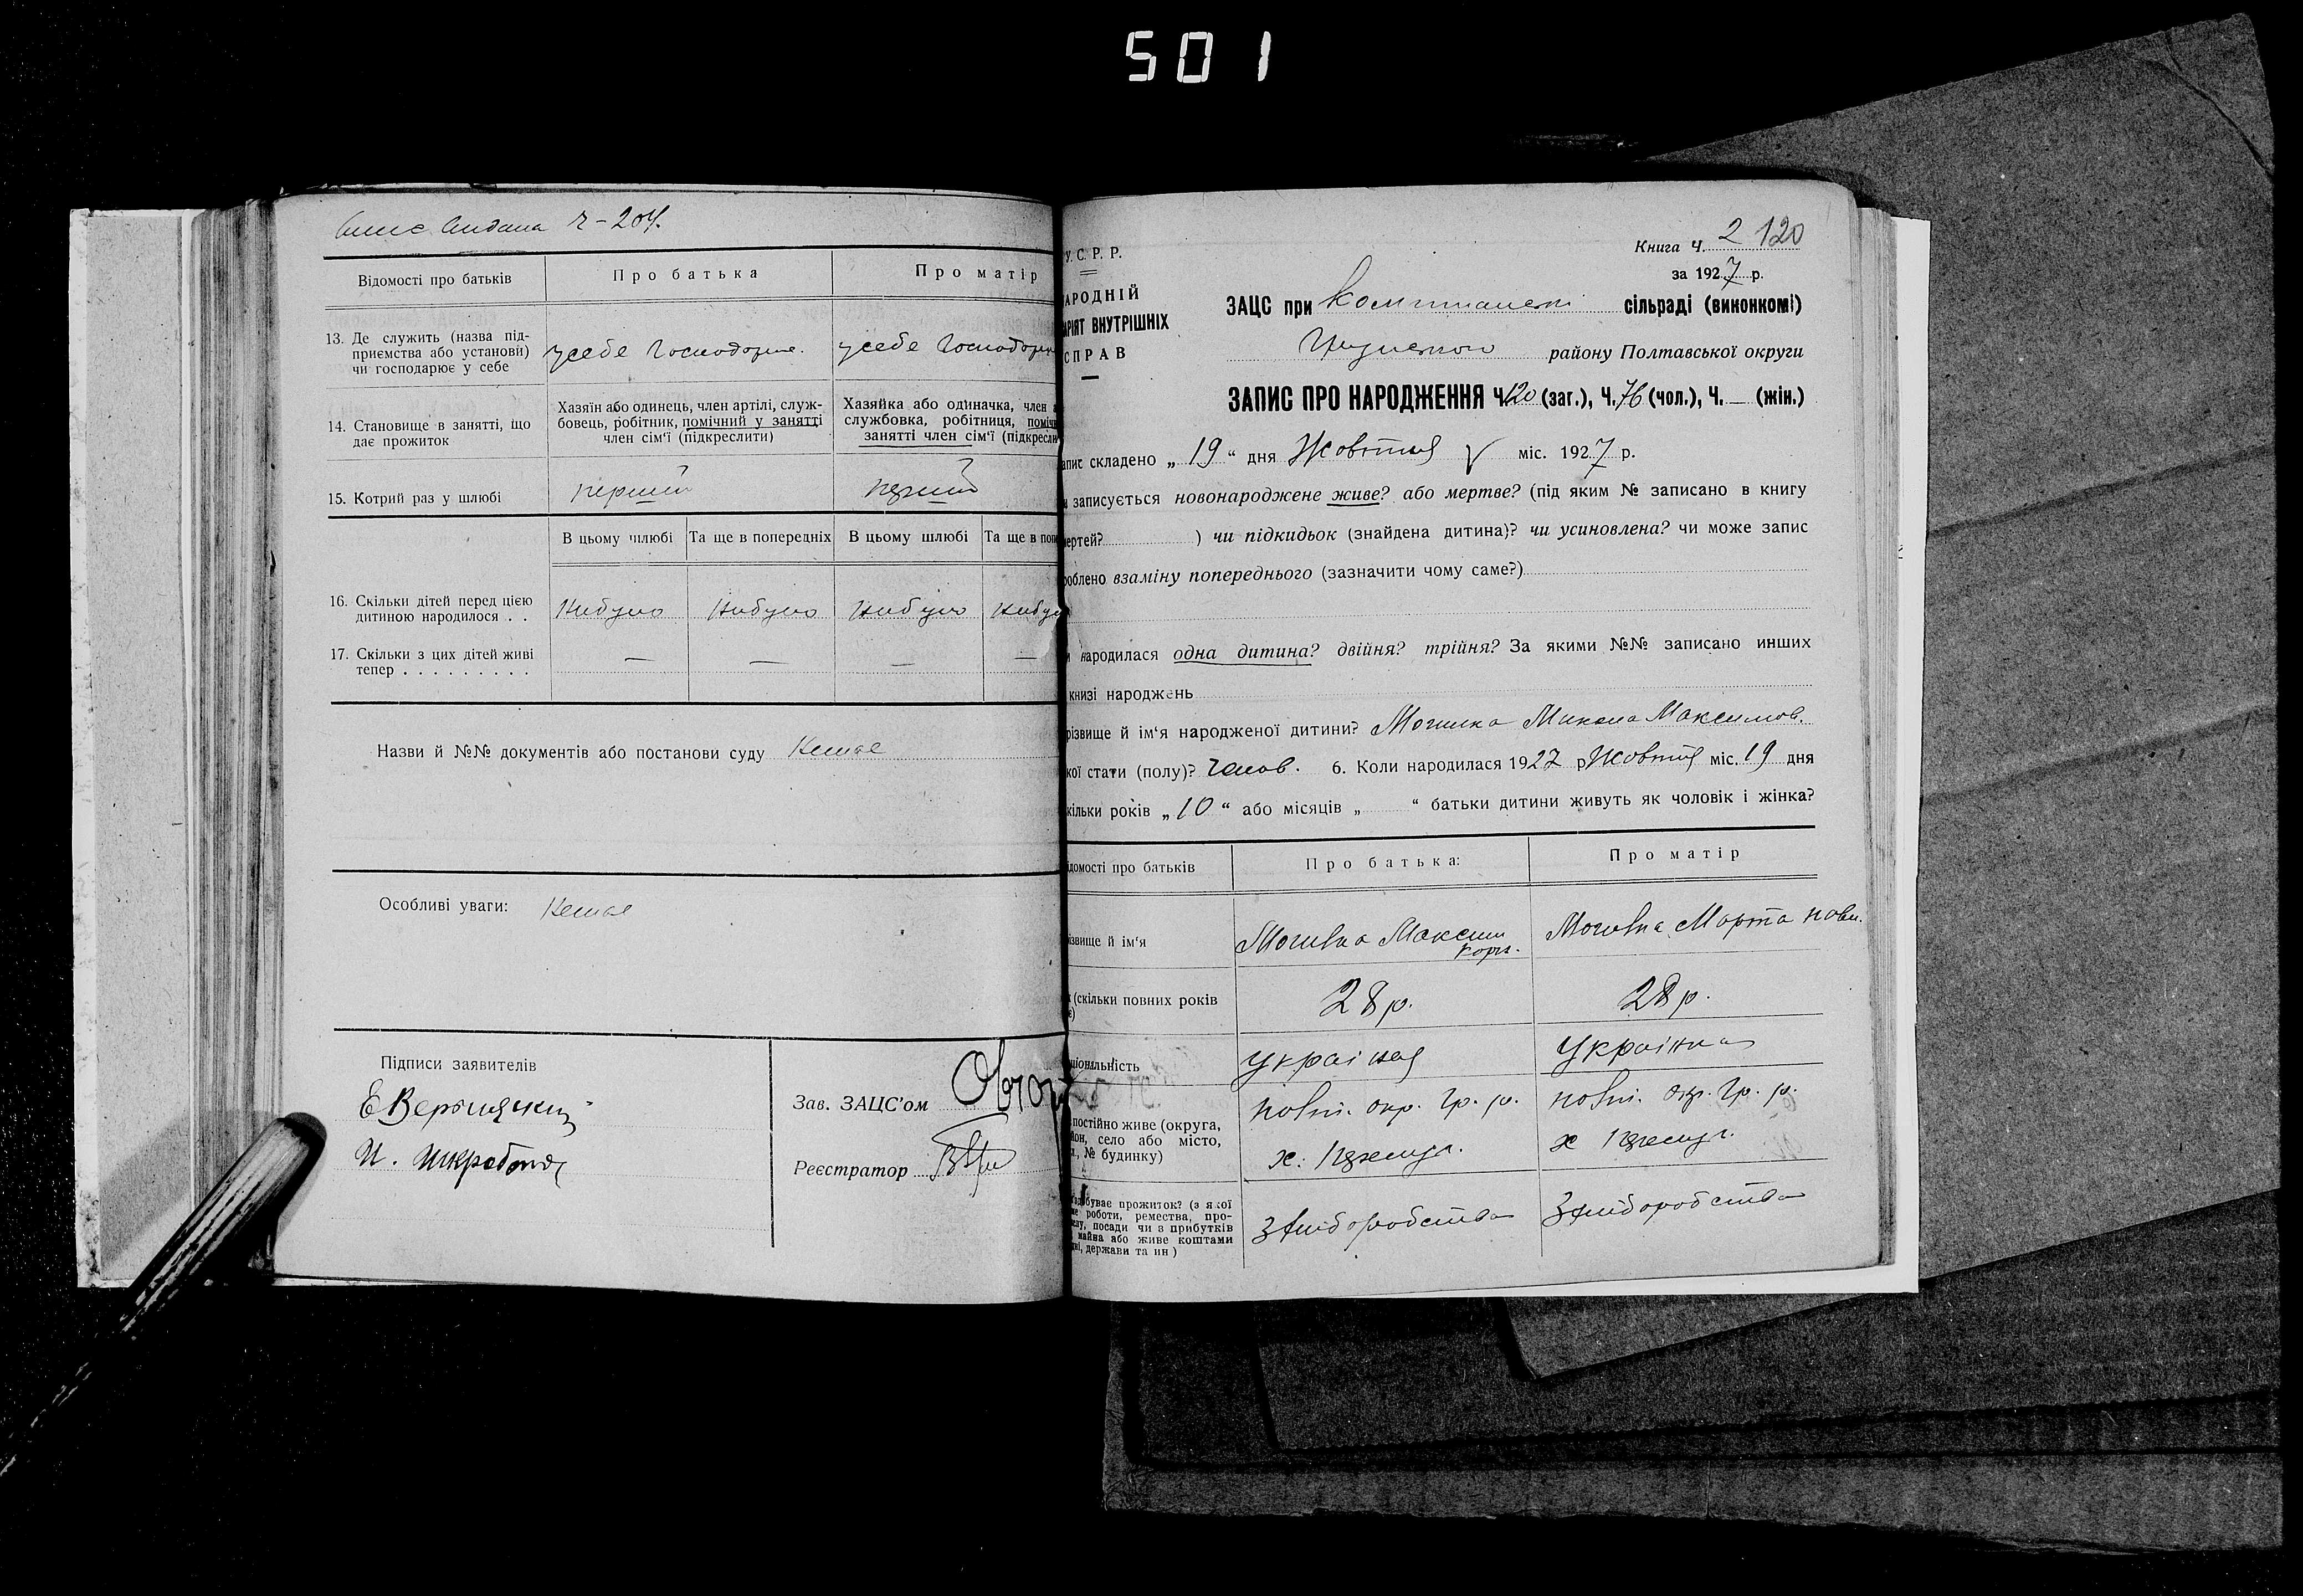 501
ч-204.
Відомості про батьків
Про батька
Про матір
13. Де служить (назва під-
приємства або установи)
чи господарює у себе
усебе Господорює.
усебе Господорює
14. Становище в занятті, що
дає прожиток
Хазяїн або одинець, член артілі, служ-
бовець, робітник, помічний у занятті
член сім'ї (підкреслити)
Хазяйка або одіначка, член а
службовка, робітниця, поміч
занятті член сім'ї (підкресли
15. Котрий раз у шлюбі
перший
перший
В цьому шлюбі
Та ще в попередніх
В цьому шлюбі
Та ще в поп
16. Скільки дітей перед цією
дитиною народилося . .
Небуло
Небуло
Небуло
Небул
17. Скільки з цих дітей живі
тепер . . . . . . . . .
—
—
—
—
Назви й №№ документів або постанови суду Немає
Особливі уваги: Немає
Підписи заявителів
И. Шкробота
Зав. ЗАЦС'ом
Реєстратор
У. С. Р. Р.
АРОДНІЙ
АРІЯТ ВНУТРІШНІХ
СПРАВ
Книга Ч. 2 120
за 1927 р.
ЗАЦС при сільраді (виконкомі)
району Полтавської округи
ЗАПИС ПРО НАРОДЖЕННЯ Ч. 120 (заг.), Ч. 76 (чол.), Ч. — (жін.)
апис складено „ 19 “ дня Жовтня міс. 1927 р.
и записується новонароджене живе? або мертве? (під яким № записано в книгу
мертей? ) чи підкидьок (знайдена дитина)? чи усиновлена? чи може запис
роблено взаміну попереднього (зазначити чому саме?)
и народилася одна дитина? двійня? трійня? За якими №№ записано инших
книзі народжень
різвище й ім'я народженої дитини? Могилка Микола Максимов.
кої стати (полу)? Чолов. 6. Коли народилася 1927 р Жовтня міс. 19 дня
кільки років „ 10 “ або місяців „ “ батьки дитини живуть як чоловік і жінка?
ідомості про батьків
Про батька:
Про матір
ізвище й ім'я
Максим
Марта
к (скільки повних років
є)
28 р.
28 р.
ціональність
Україн
Українка
постійно живе (округа,
йон, село або місто,
л, № будинку)
Полт. окр. Гр. р.
Полт. окр. Гр. р.
здобуває прожиток? (з якої
ме роботи, ремества, про-
слу, посади чи з прибутків
майна або живе коштами
ні, держави та ин)